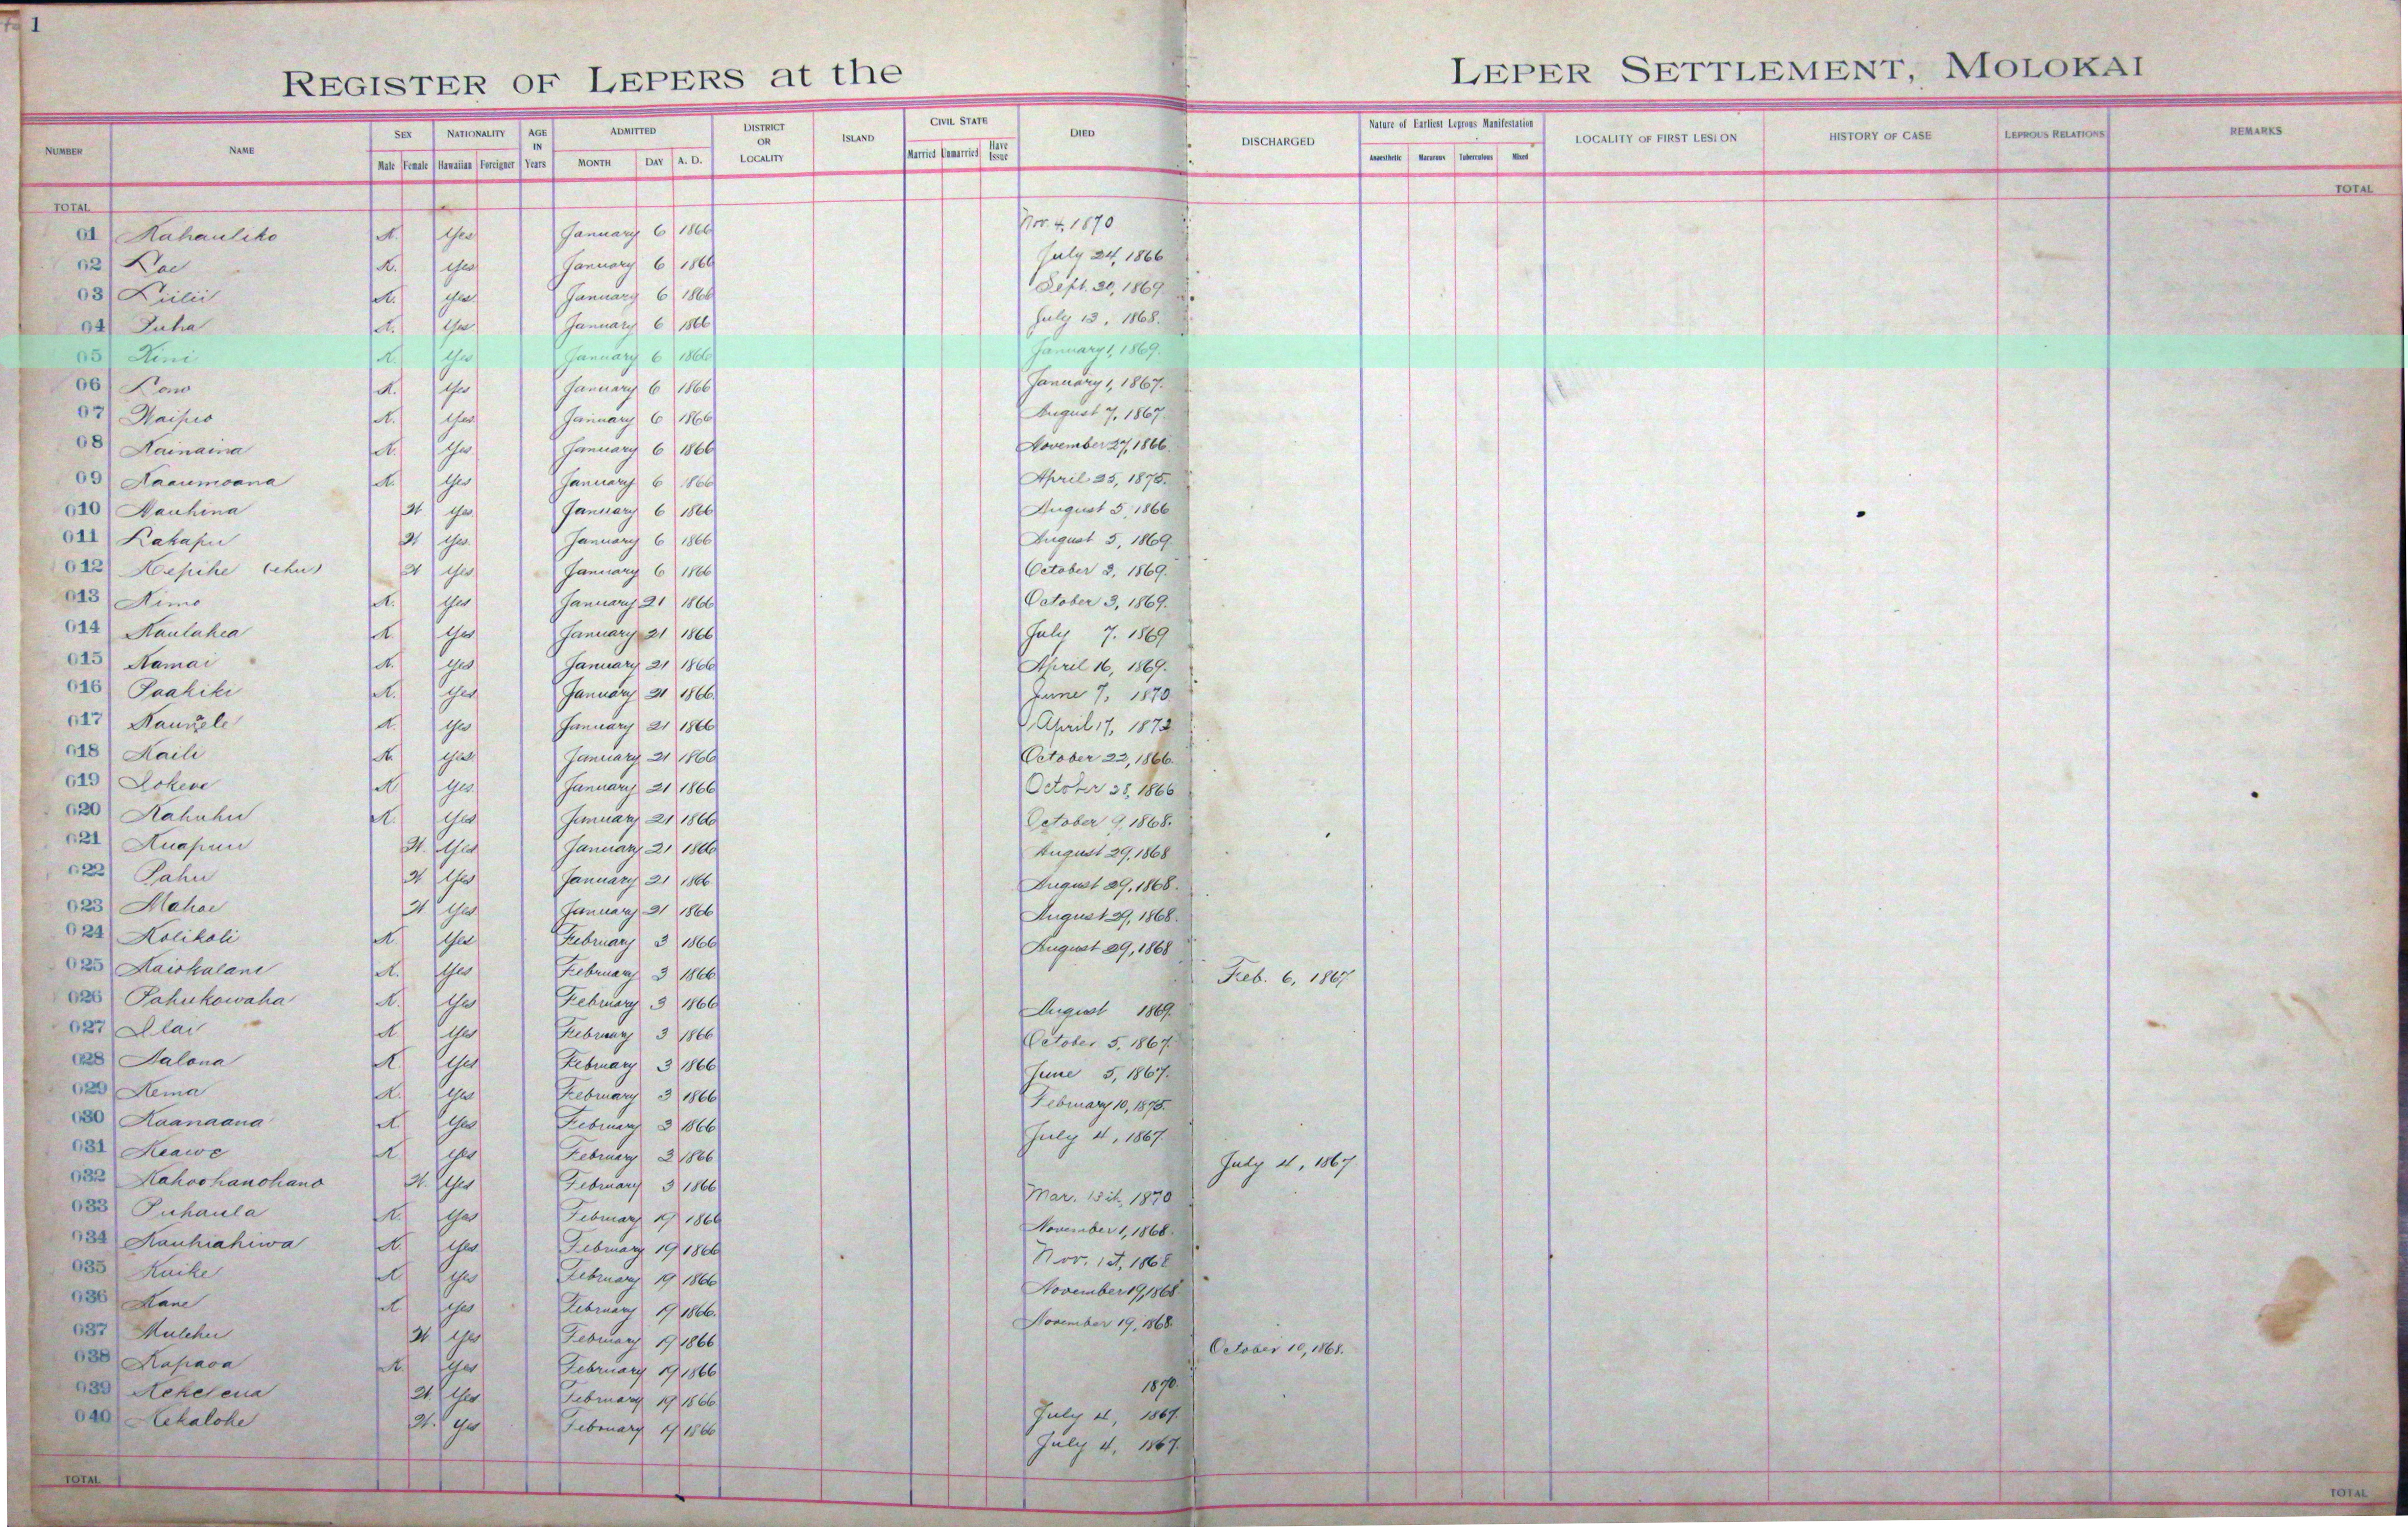 1
REGISTER OF LEPERS at the LEPER SETTLEMENT, MOLOKAI
NUMBER NAME SEX NATIONALITY AGE IN Years ADMITTED DISTRICT OR LOCALITY ISLAND CIVIL STATE DIED DISCHARGED Nature of Earliest Leprous Manifestation LOCALITY OF FIRST LESION HISTORY OF CASE LEPROUS RELATIONS REMARKS
Male Female Hawaiian Foreigner MONTH DAY A. D. Married Unmarried Have Issue Anaesthetic Macurous Tuberculous Mixed
TOTAL TOTAL
01 Kahauliko K. Yes January 6 1866 Nov. 4, 1870
02 Kae K. Yes January 6 1866 July 24, 1866
03 Liilii K. Yes January 6 1866 Sept. 30, 1869.
04 Puha K. Yes January 6 1866 July 13, 1868.
05 Kini K. Yes January 6 1866 January 1, 1869.
06 Lono K. Yes January 6 1866 January 1, 1867.
07 Waipio K. Yes January 6 1866 August 7, 1867.
08 Kainaina K. Yes January 6 1866 November 27, 1866.
09 Kaaumoana K. Yes January 6 1866 April 25, 1875.
010 Nauhina W Yes January 6 1866 August 5, 1866
011 Lakapu W Yes January 6 1866 August 5, 1869.
012 Kepihe (ehu) W Yes January 6 1866 October 2, 1869.
013 Kimo K. Yes January 21 1866 October 3, 1869.
014 Kaulahea K. Yes January 21 1866 July 7. 1869
015 Kamai K. Yes January 21 1866 April 16, 1869.
016 Paakiki K. Yes January 21 1866 June 7, 1870
017 Kauwele K. Yes January 21 1866 April 17, 1872
018 Kaili K. Yes January 21 1866 October 22, 1866.
019 Lokene K Yes January 21 1866 October 28, 1866
020 Kahuhu K. Yes January 21 1866 October 9, 1868.
021 Kuapuu W. Yes January 21 1866 August 29, 1868
022 Pahu W Yes January 21 1866 August 29, 1868.
023 Mahoe W Yes January 21 1866 August 29, 1868.
024 Kolikoli K Yes February 3 1866 August 29, 1868
025 Kaiokalani K. Yes February 3 1866 Feb. 6, 1867
026 Pahukowaha K. Yes February 3 1866 August 1869.
027 Ilai K Yes February 3 1866 October 5, 1867.
028 Kalona K. Yes February 3 1866 June 5, 1867.
029 Kema K. Yes February 3 1866 February 10, 1875.
030 Kaanaana K Yes February 3 1866 July 4, 1867.
031 Keawe K Yes February 3 1866 July 4, 1867
032 Kahoohanohano W. Yes February 3 1866 Mar. 13th, 1870
033 Puhaula K. Yes February 19 1866 November 1, 1868.
034 Kauhiahiwa K. Yes February 19 1866 Nov. 1st, 1868
035 Kaike K Yes February 19 1866 November 19, 1868
036 Kane K Yes February 19 1866. November 19, 1868.
037 Mulehu W Yes February 19 1866 October 10, 1868.
038 Kapaoa K. Yes February 19 1866
039 Kekelena W. Yes February 19 1866 1870.
040 Kekalohe W. Yes February 19 1866 July 4, 1867.
July 4, 1867.
TOTAL TOTAL